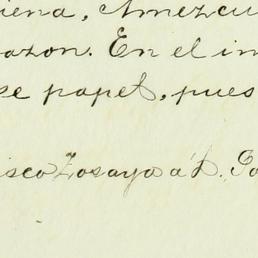 iena, Amezcu
azon. En el im
se papel, pues
isco Zosaya á D.